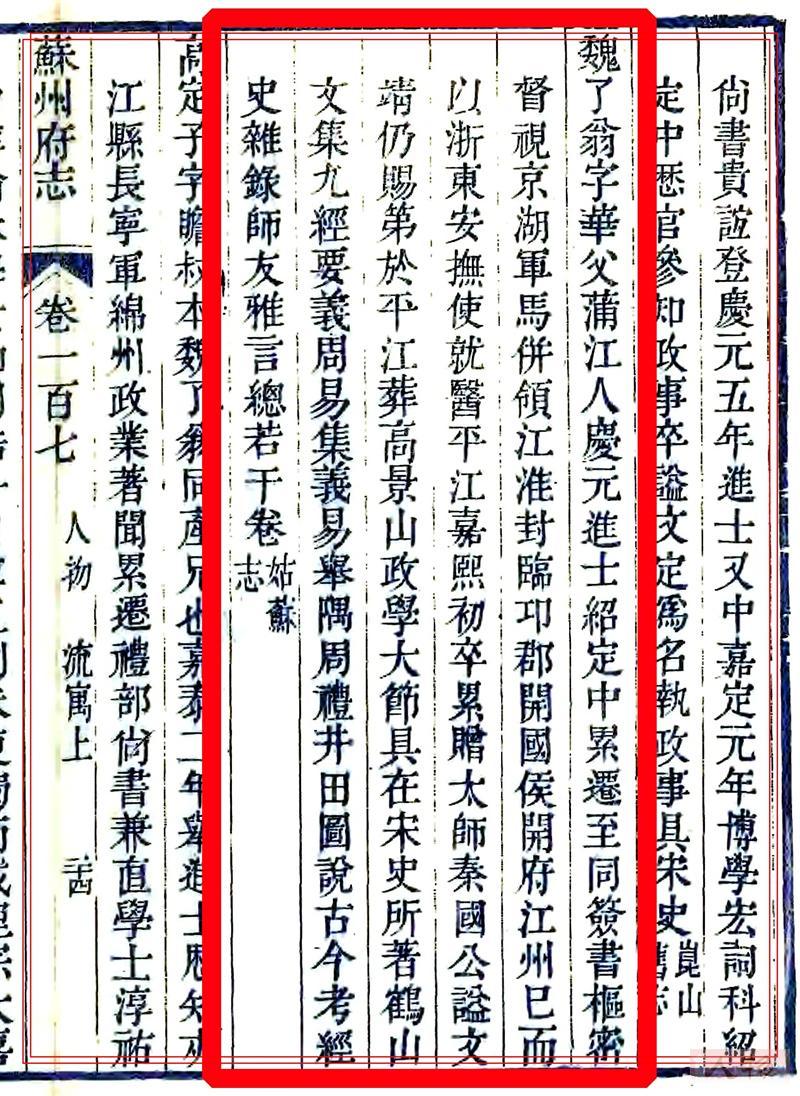 尙書貴誼登慶元五年進士又中嘉定元年博學宏詞科紹
定中歷官參知政事卒謚文定爲名執政事具宋史崑山舊志
魏了翁字華父蒲江人慶元進士紹定中累遷至同簽書樞密
督視京湖軍馬併領江淮封臨邛郡開國侯開府江州已而
以浙東安撫使就醫平江嘉熙初卒累贈太師秦國公謚文
靖仍賜第於平江葬高景山政學大節具在宋史所著鶴山
文集九經要義周易集義易舉隅周禮井田圖說古今考經
史雜錄師友雅言總若干卷姑蘇志
高定子字瞻叔本魏了翁同產兄也嘉泰二年舉進士歷知夾
江縣長寧軍綿州政業著聞累遷禮部尙書兼直學士淳祐
蘇州府志 卷一百七 人物 流寓上 三十四